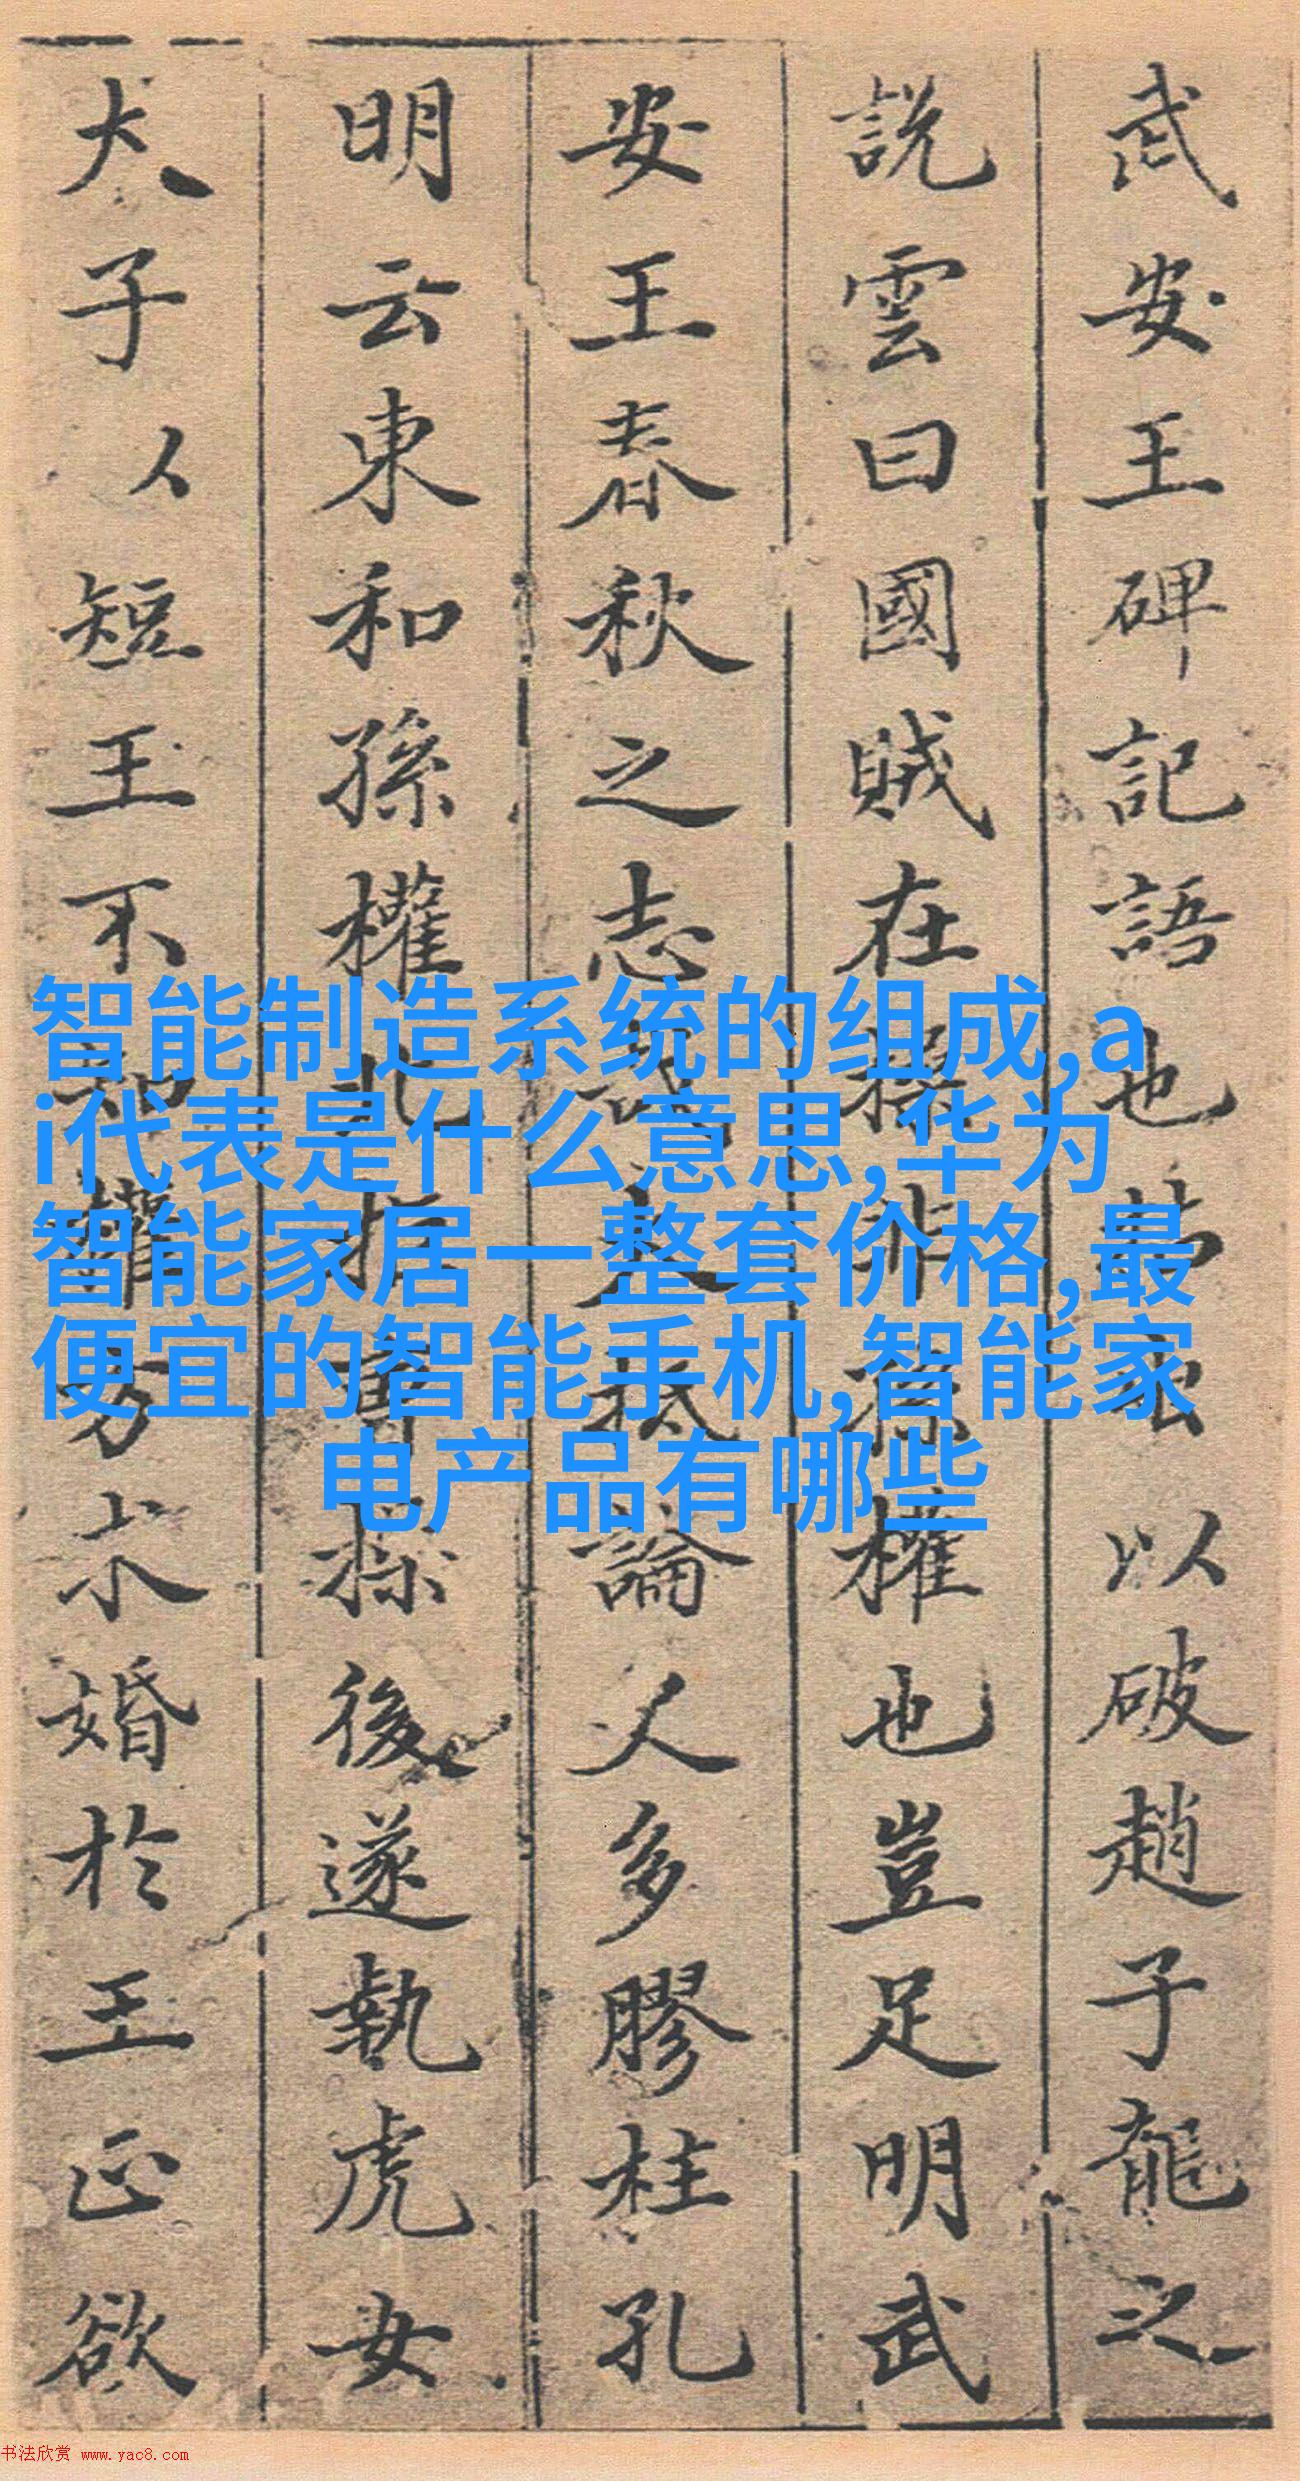 武安王碑記語也以破趙子龍之
説雲曰國賊在操非孫權也豈足明武
安王春秋之志哉大抵論人多膠柱孔
明云東和孫權北拒曹操後遂執虎女
犬子以短王不知權方求婚於王正欲
智能制造系统的组成,a
i代表是什么意思,华为
智能家居一整套价格,最
便宜的智能手机,智能家
电产品有哪些
书法欣赏 www.yac8.com